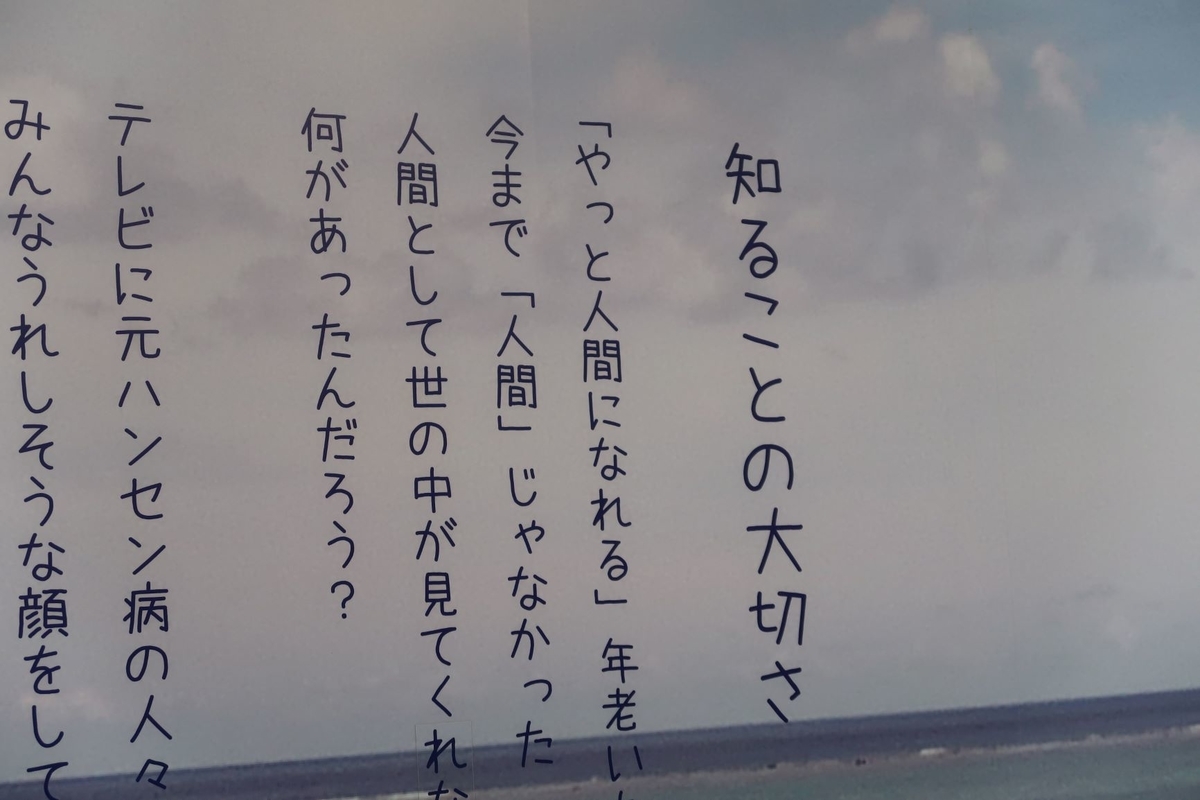 知ることの大切さ
「やっと人間になれる」年老い
今まで「人間」じゃなかった
人間として世の中が見てくれな
何があったんだろう？
テレビに元ハンセン病の人々
みんなうれしそうな顔をして